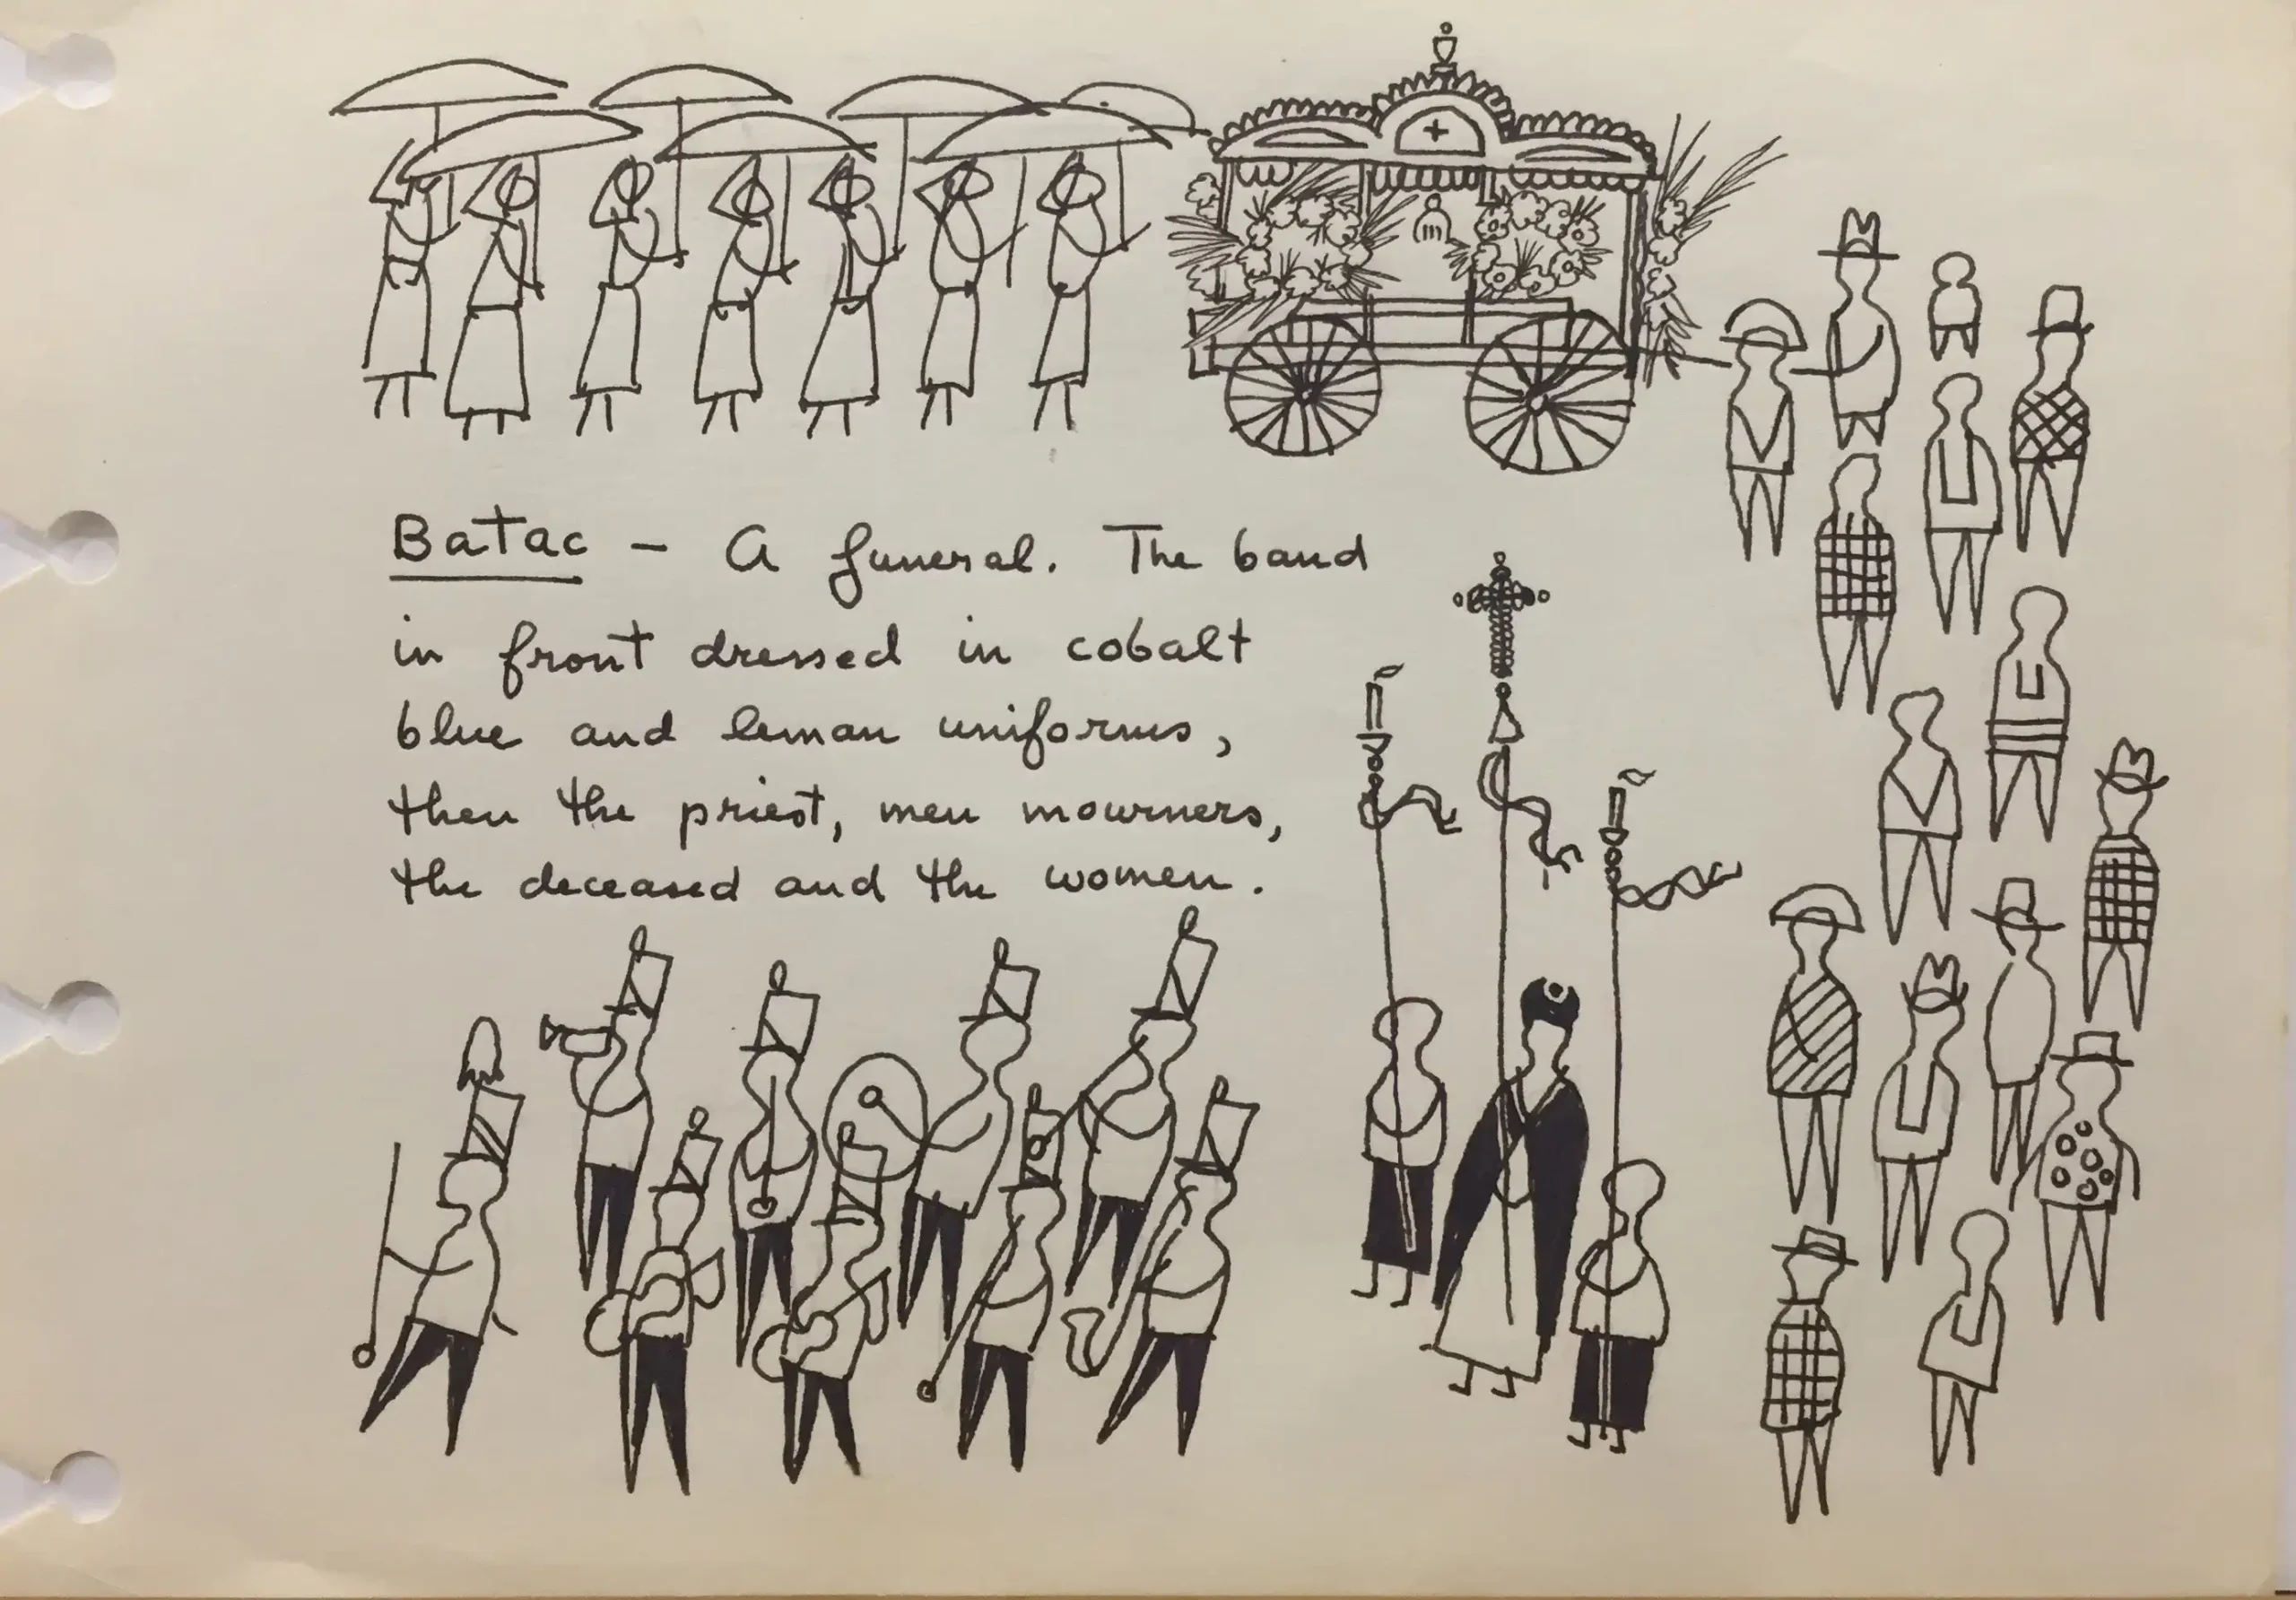 Batac – A funeral. The band
in front dressed in cobalt
blue and leman uniforms,
then the priest, men mourners,
the deceased and the women.